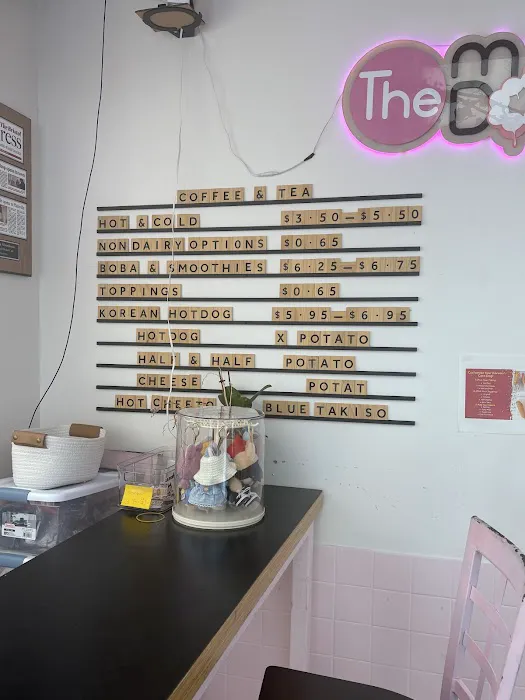 The
COFFEE & TEA
HOT & COLD $3.50—$5.50
NON DAIRY OPTIONS $0.65
BOBA & SMOOTHIES $6.25—$6.75
TOPPINGS $0.65
KOREAN HOTDOG $5.95—$6.95
HOTDOG X POTATO
HALF & HALF POTATO
CHEESE POTAT
HOT CHEETO BLUE TAKISO